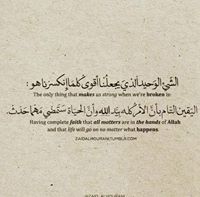 الشيء الوحيد الذي يجعلنا أقوى كلما إنكسرنا هو:
The only thing that makes us strong when we're broken is:
اليقين التام بأن الأمر كله بيد الله وأن الحياة ستمضي مهما حدث.
Having complete faith that all matters are in the hands of Allah
and that life will go on no matter what happens.
ZAIDALHOURANI.TUMBLR.COM